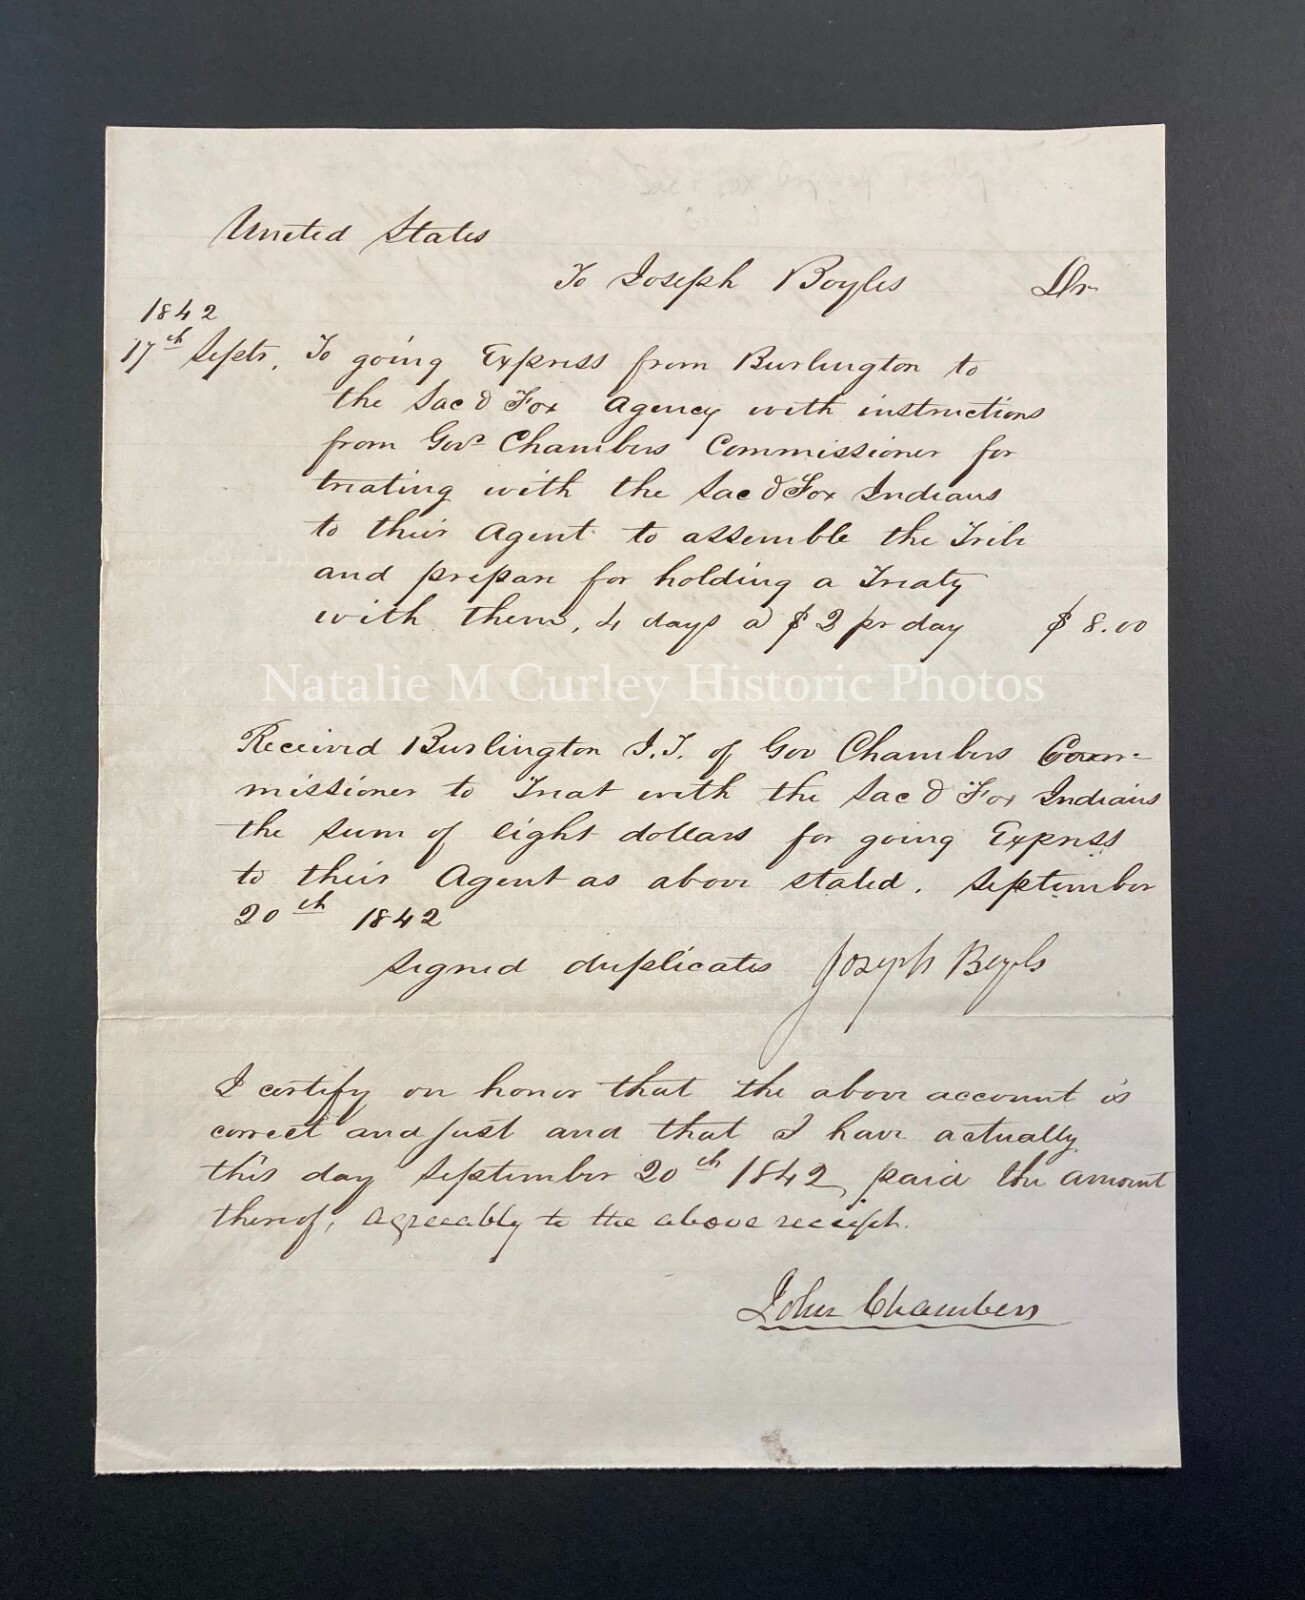 United States
To Joseph Boyles Dr
1842
17th Septr. To going Express from Burlington to
the Sac & Fox Agency with instructions
from Govr Chambers Commissioner for
treating with the Sac & Fox Indians
to their Agent to assemble the Tribe
and prepare for holding a Treaty
with them, 4 days a $2 pr day $8.00
Natalie M Curley Historic Photos
Received Burlington I.T. of Gov Chambers Com-
missioner to Treat with the Sac & Fox Indians
the sum of eight dollars for going Express
to their Agent as above stated. September
20th 1842
Signed duplicates Joseph Boyls
I certify on honor that the above account is
correct and just and that I have actually
this day September 20th 1842, paid the amount
thereof, agreeably to the above receipt.
John Chambers